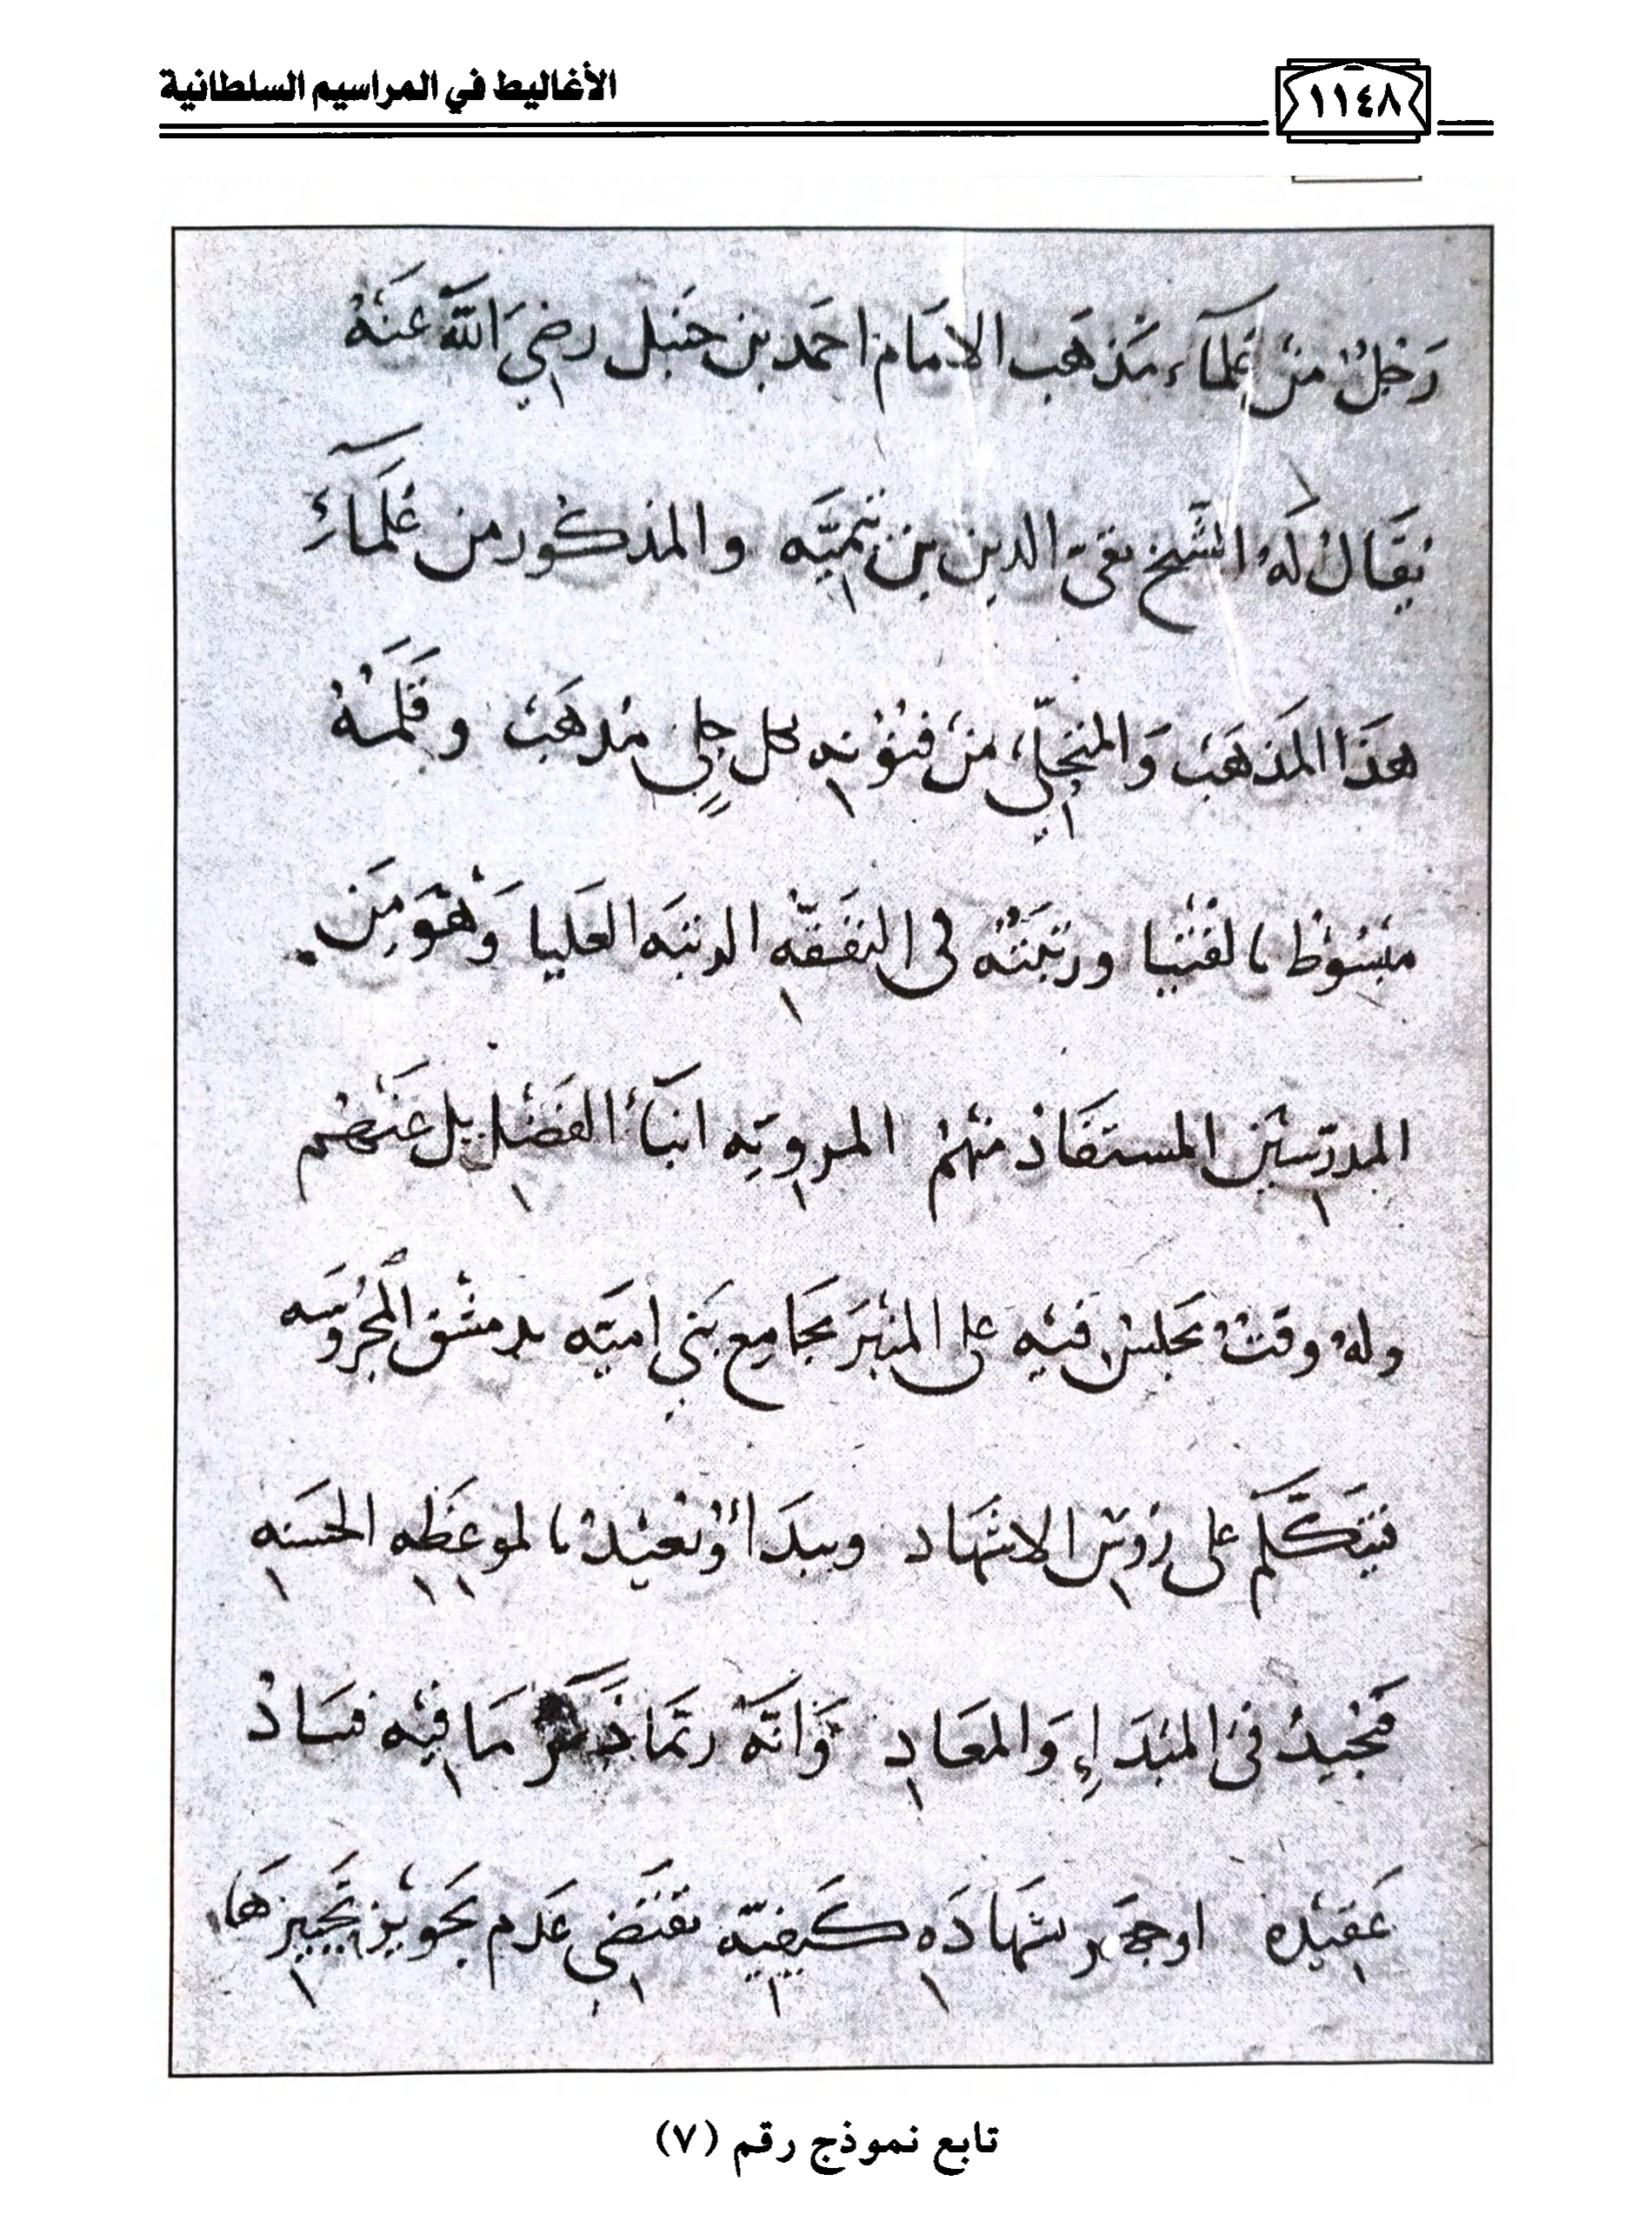 ١١٤٨
الأغاليط في المراسيم السلطانية
رَجُلٌ مِنْ عُلمَآءِ مَذهَب الامَام احمَد بن حنبل رضيَ اللَّهُ عَنْهُ
يُقَال لَهُ الشيخ تقيّ الدين بن تيميَّه والمذكور من عُلَمَاءِ
هذَا المَذهَبْ وَالمنجَلي مِنْ فنوُنِه كل جلِيٍ مُذهَبْ وقَلَمُهُ
مبْسُوطْ بالفُتيا ورتبَتُه في التَفَقّه الرتبَه العَليا وَهُوَ مِنَ
المدرّسيْن المستفَاد منهُمْ المرويّه انبآءُ الفَضْل بل عَنْهُم
ولهُ وقتْ يجلسُ فيْه على المنْبَر بجَامِع بَني اميّه بدمشق المحرُوسَه
فيَتكَلَّم على رُوسِ الاشهَاد ويبدَأ ويُعيْدُ بالموعَظه الحسَنه
فَيُجيدُ في المبْدَإِ وَالمعَادِ وَانَّهُ ربّمَا ذَكَر مَا فيْه فسَادُ
عَقيْده اوجهَر شهَادَه كَيفيّه تقتَضي عَدَم تجَويْز تَجييزهَا
تابع نموذج رقم (٧)